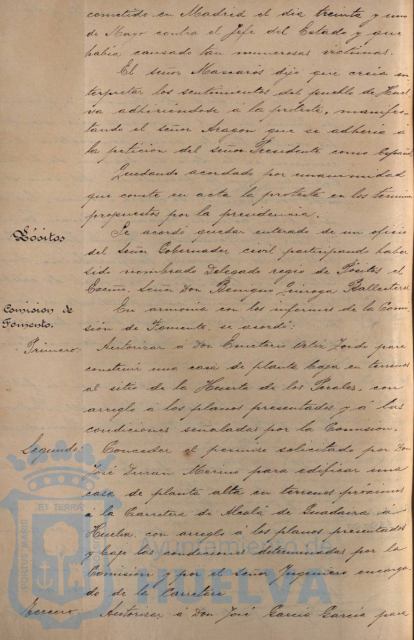 cometido en Madrid el dia treinta y uno
de Mayo contra el Jefe del Estado y que
habia causado tan numerosas victimas.
El señor Mascarós dijo que creia in-
terpretar los sentimientos del pueblo de Huel
va adhiriéndose á la protesta, manifes-
tando el señor Aragon que se adheria á
la peticion del señor Presidente como español
Quedando acordado por unanimidad
que conste en acta la protesta en los términos
propuestos por la presidencia.
Pósitos
Se acordó quedar enterado de un oficio
del Señor Gobernador civil participando haber
sido nombrado Delegado regio de Pósitos el
Excmo. Señor Don Benigno Quiroga Ballesteros
Comision de
Fomento.
En armonia con los informes de la Comi-
sion de Fomento, se acordó:
Primero. Autorizar á Don Emeterio para
construir una casa de planta baja en terrenos
al sitio de la Huerta de los Perales, con
arreglo á los planos presentados y á las
condiciones señaladas por la Comision.
Segundo: Conceder el permiso solicitado por Don
José Duran Merino para edificar una
casa de planta alta en terrenos próximos
á la Carretera de Alcalá de Guadaira á
Huelva, con arreglo á los planos presentados
y bajo las condiciones determinadas por la
Comision y por el señor Ingeniero encarga-
do de la Carretera
Tercero. Autorizar á Don José Garcia Garcia para
Ayuntamiento de
HUELVA